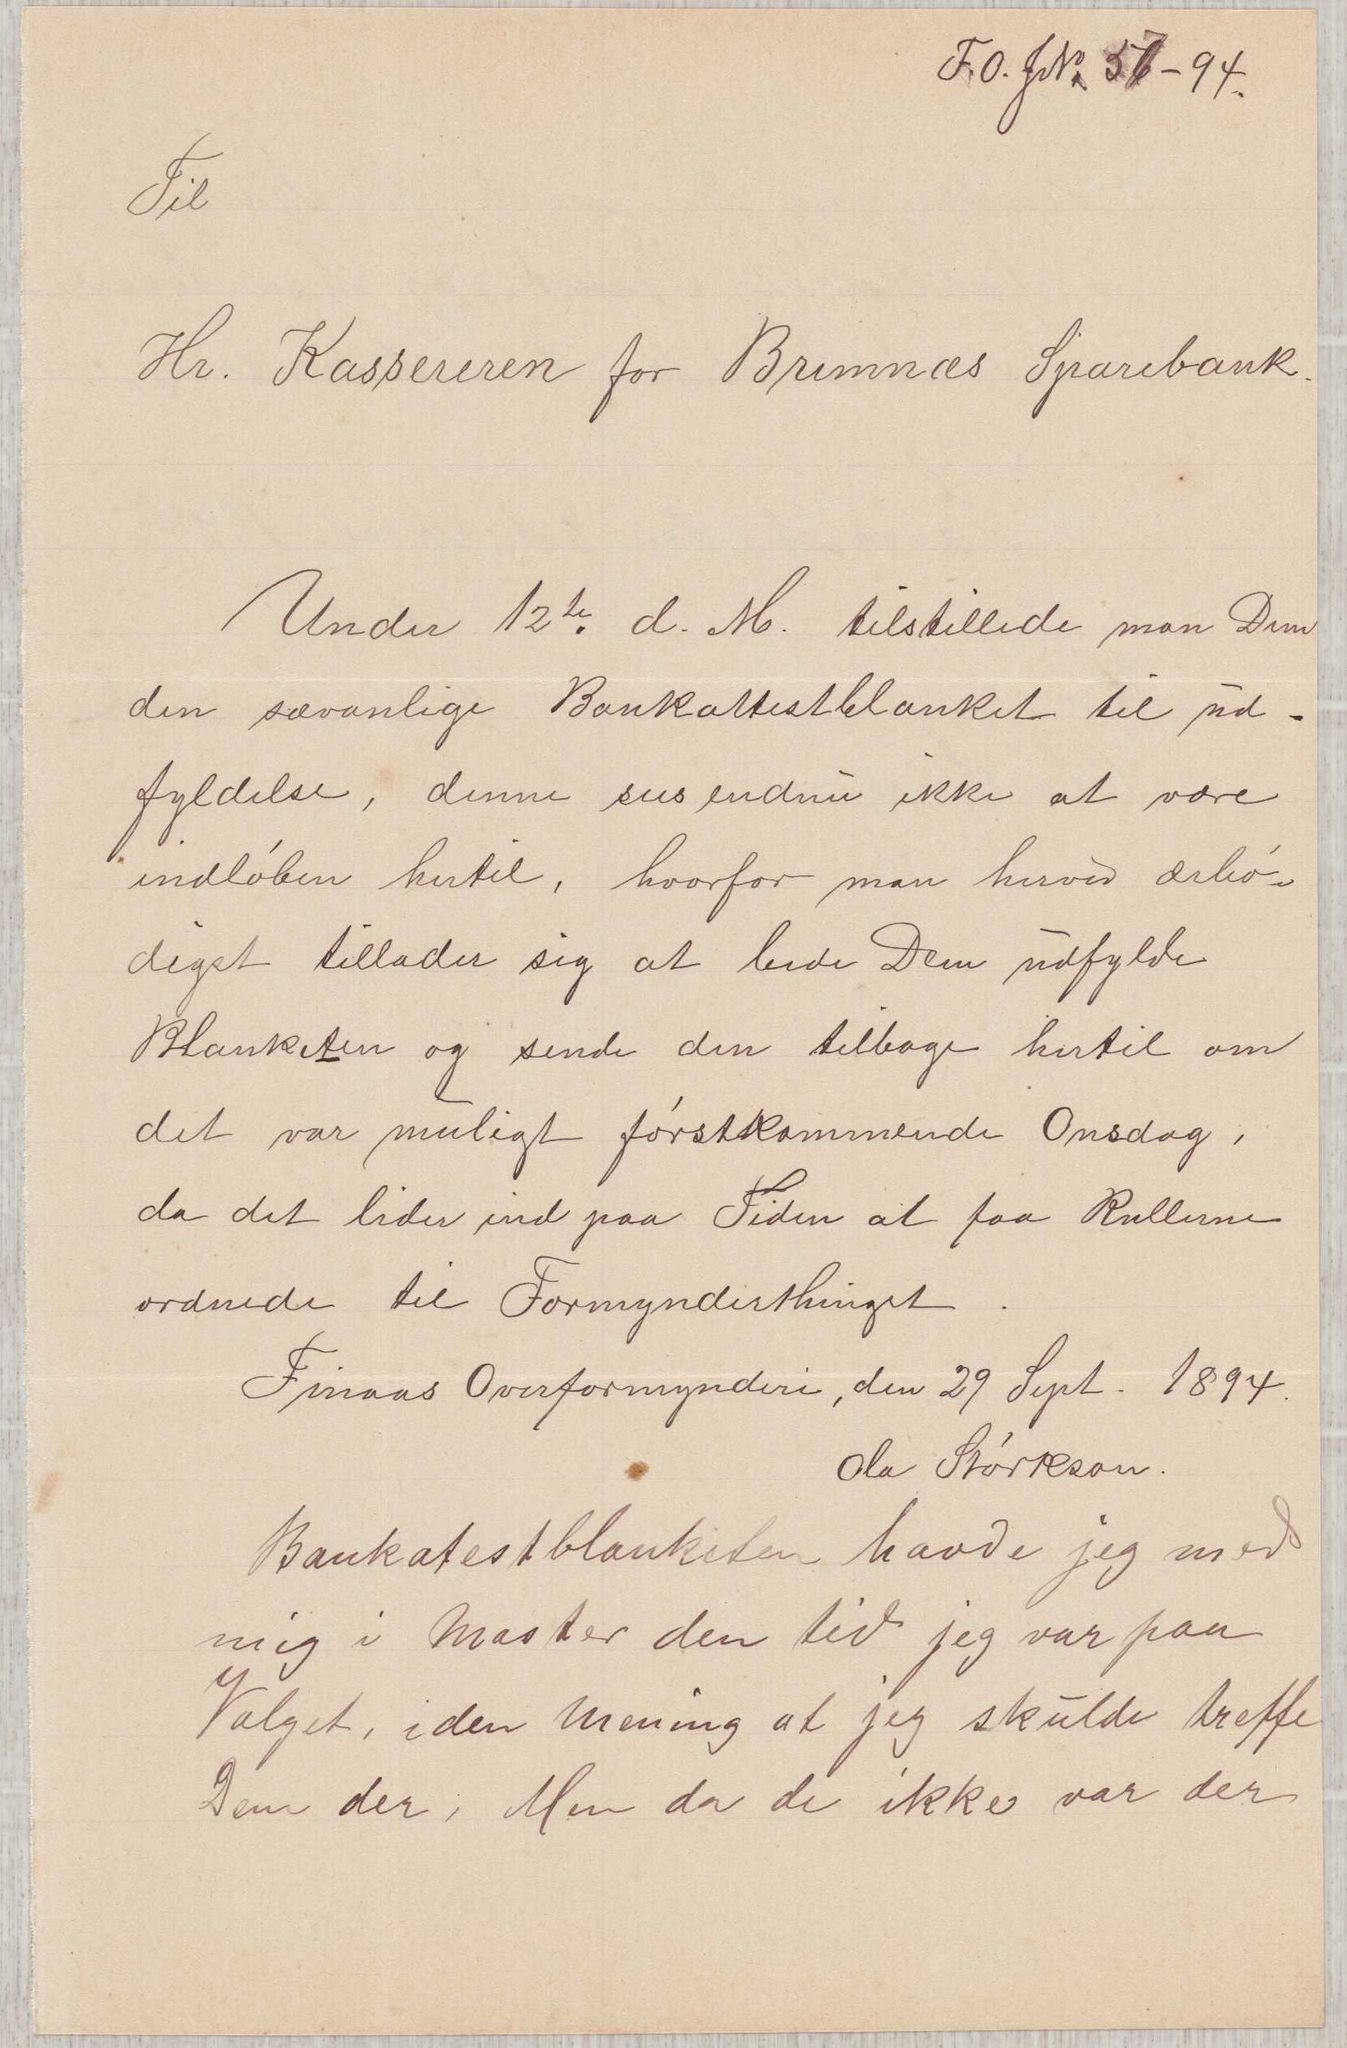 F.O. JNo. 57-94.
Til
Hr. Kassereren for Bremnæs Sparebank.
Under 12te. d. M. tilstillede man Dem
den sævanlige Bankattestblanket til ud-
fyldelse, denne sees endnu ikke at være
indløben hertil, hvorfor man herved ærbø-
digst tillader sig at bede Dem udfylde
Blanketten og sende den tilbage hertil om
det var muligt førstkommende Onsdag,
da det lider ind paa Tiden at faa Rullerne
ordnede til Formynderthinget.
Finaas Overformynderi, den 29 Sept. 1894.
Ola Størkson.
Bankatestblanketen havde jeg med
mig i Moster den tid jeg var paa
Valget, i den Mening at jeg skulde treffe
Dem der, Men da de ikke var der